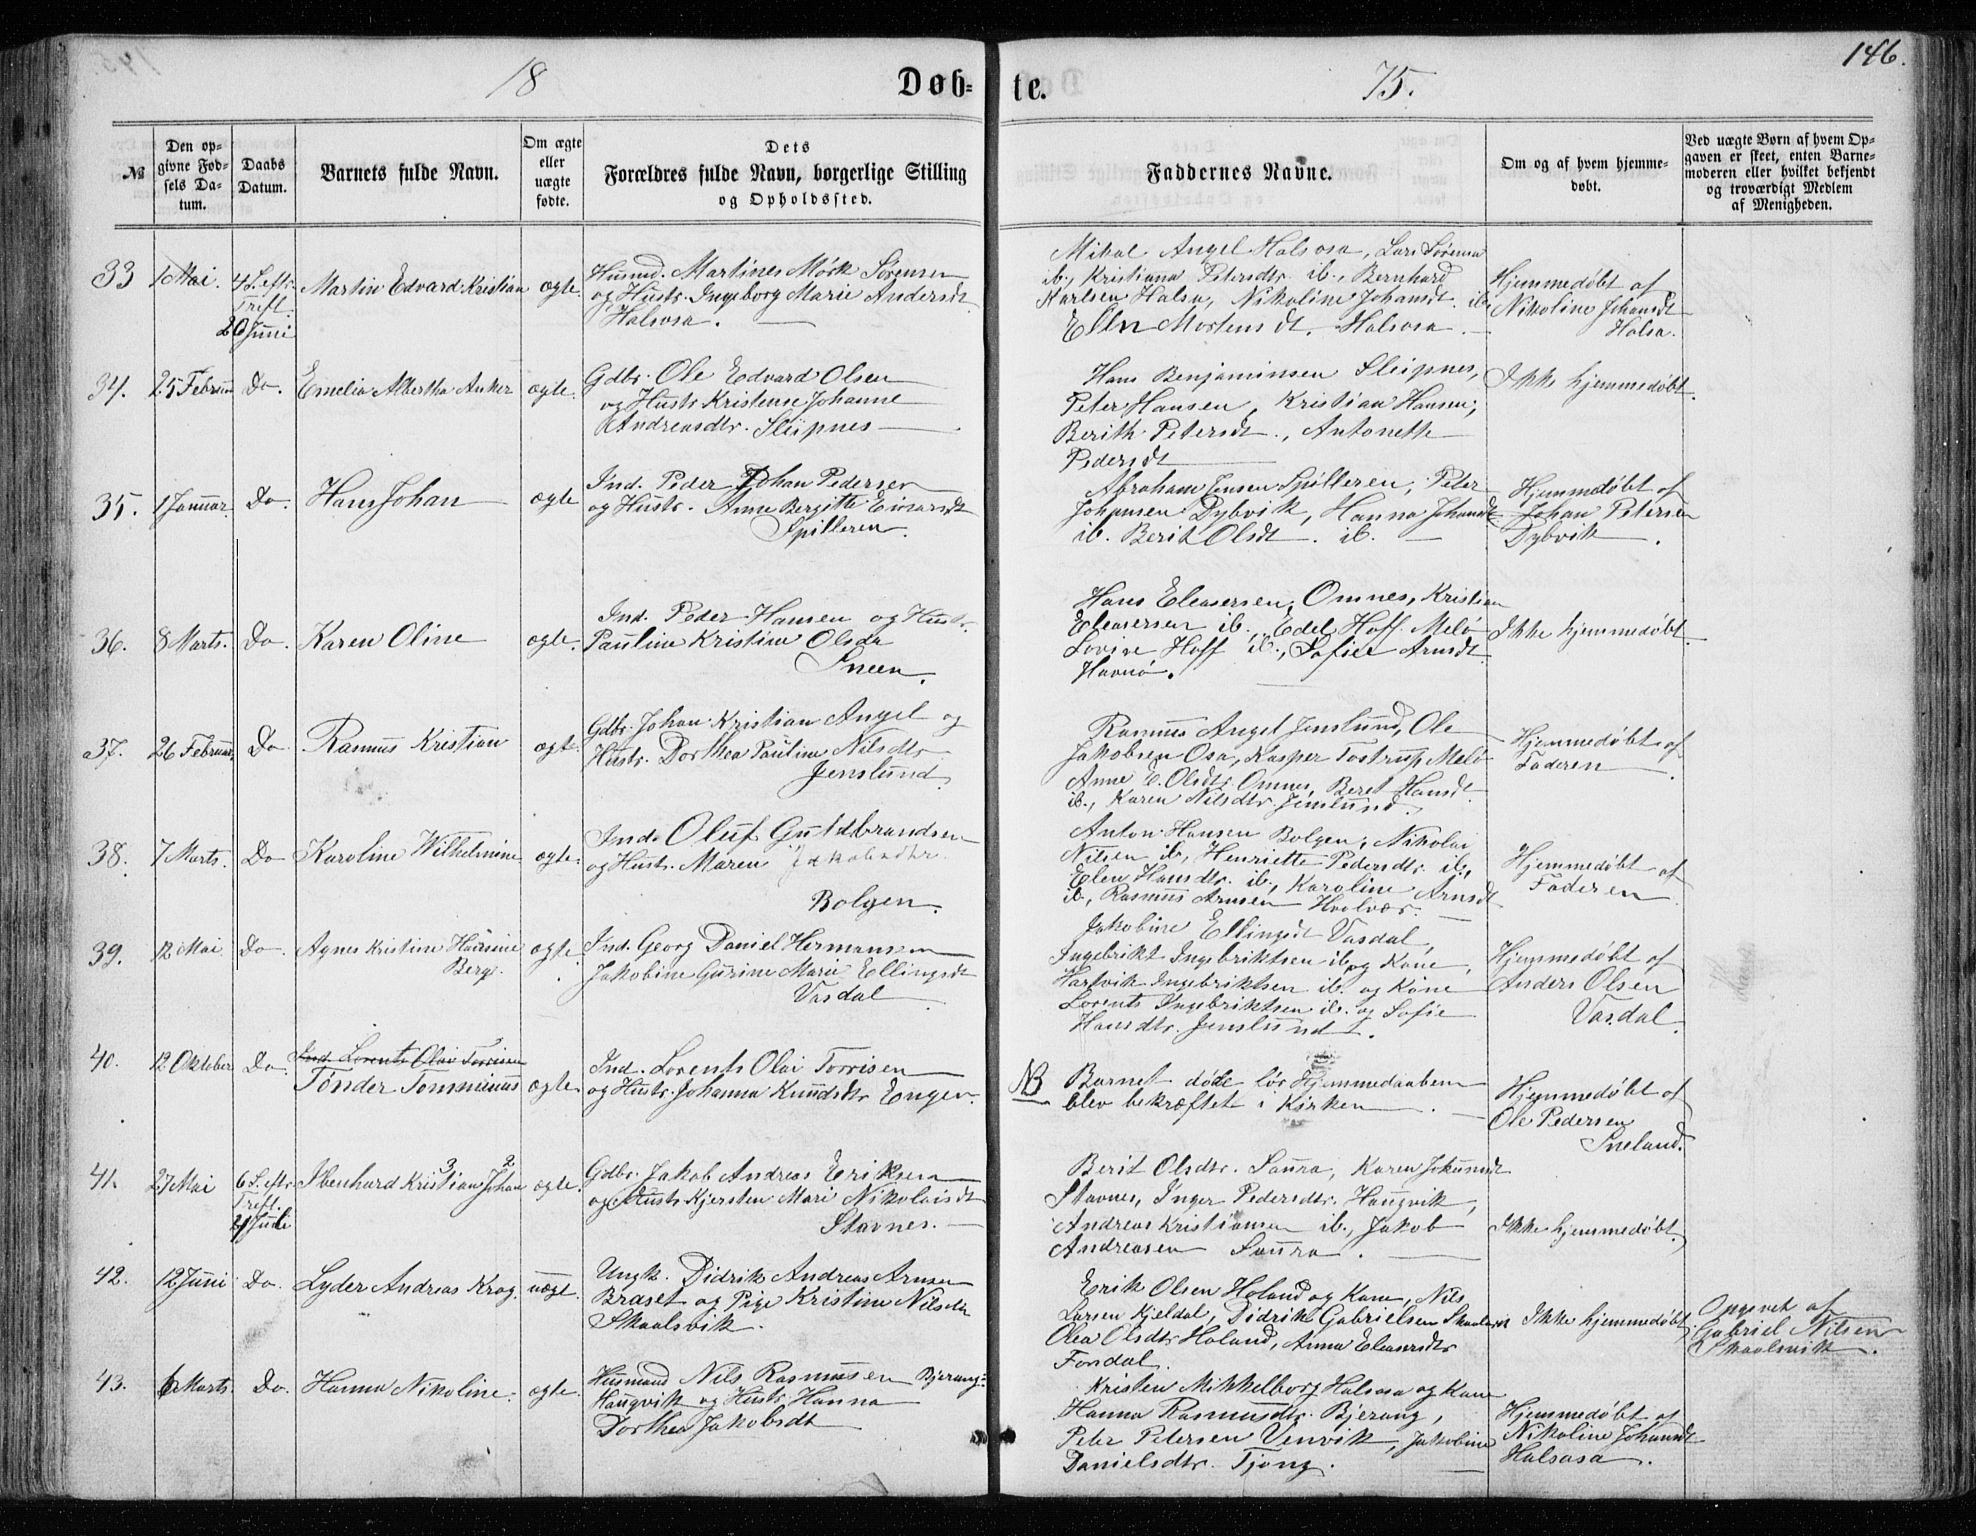 146.
18
Døb=
te.
75.
№
Den op=
givne Fød=
sels Da=
tum.
Daabs
Datum.
Barnets fulde Navn.
Om ægte
eller
uægte
fødte.
Dets
Forældres fulde Navn, borgerlige Stilling
og Opholdssted.
Faddernes Navne.
Om og af hvem hjemme=
døbt.
Ved uægte Børn af hvem Op=
gaven er skeet, enten Barne=
moderen eller hvilket bekjendt
og troværdigt Medlem
af Menigheden.
33
1 Mai.
4 S. eftr.
Trift.
20 Juni
Martin Edvard Kristian
ægte.
Husmd. Martines Mørk Sørensen
og Hustr. Ingeborg Marie Andersdt
Halsosa.
Mikal Angel Halsosa, Lars Sørensen
ib., Kristiana Petersdtr. ib., Bernhard
Karlsen Halsa, Nikoline Johansdt. ib.
Ellen Mortensdt. Halsosa
Hjemmedøbt af
Nikoline Johansdt
Halsa.
34.
25 Februar
Do.
Emelia Albertha Anker
ægte.
Gdbr. Ole Edvard Olsen
og Hustr Kristense Johanne
Andreasdtr. Sleipnes
Hans Benjaminsen Sleipnes,
Peter Hansen, Kristian Hansen,
Berith Petersdt., Antonette
Pedersdt
Ikke hjemmedøbt.
35.
1 Januar.
Do.
Hans Johan
ægte
Ind. Peder Johan Pedersen
og Hustr. Anne Bergitte Einarsdt
Spilleren.
Abraham Jensen Spilleren, Peter
Johansen Dybvik, Hanna Johansdt
ib. Berit Olsdt. ib.
Hjemmedøbt af
Johan Petersen
Dybvik.
36.
8 Marts.
Do.
Karen Oline
ægte.
Ind. Peder Hansen og Hustr.
Pauline Kristine Olsdtr
Sneen.
Hans Eleasersen, Omnes, Kristian
Eleasersen ib., Edel Hoff Melø
Lovise Hoff ib., Sofie Arnsdt.
Havnø.
Ikke hjemmedøbt.
37.
26 Februar.
Do
Rasmus Kristian
ægte.
Gdbr. Johan Kristian Angel og
Hustr. Dorthea Pauline Nilsdtr.
Jenslund.
Rasmus Angel Jenslund, Ole
Jakobsen Osa, Kasper Tostrup Melø
Anne E. Olsdtr. Omnes, Beret Hansdt.
ib., Karen Nilsdtr. Jenslund.
Hjemmedøbt af
Faderen.
38.
7 Marts.
Do
Karoline Wilhelmine
ægte.
Ind. Oluf Guldbrandsen
og Hustr. Maren Jakobsdtr.
Bolgen.
Anton Hansen Bolgen, Nikolai
Nilsen ib., Henriette Pedersdtr. ib.,
Elen Hansdtr. ib., Karoline Arnsdt
ib., Rasmus Arnsen Hvolvær.
Hjemmedøbt af
Faderen.
39.
12 Mai
Do.
Agnes Kristine Hansine
Berg.
ægte
Ind. Georg Daniel Hermansen
Jakobine Gurine Marie Ellingsdt
Vasdal
Jakobine Ellingsdt Vasdal,
Ingebrikt Ingebriktsen ib. og Kone,
Hartvik Ingebriktsen ib. og Kone
Lorents Ingebriktsen ib. og Sofie
Hansdtr. Jenslund.
Hjemmedøbt af
Anders Olsen
Vasdal.
40.
12 Oktober
Do.
Ind. Lorents Olai Torrisen
Tønder Tomminius
ægte.
Ind. Lorents Olai Torrisen
og Hustr. Johanna Knudsdtr Engen.
NB
Barnet døde før Hjemmedaaben
blev bekræftet i Kirken.
Hjemmedøbt af
Ole Pedersen
Sneland.
41.
27 Mai
6 S. eftr
Trift.
4 Juli
3 2
Ibenhard Kristian Johan
ægte.
Gdbr. Jakob Andreas Eriksen
og Hustr Kjersten Mari Nikolaisdt
Stavnes.
Berit Olsdtr. Saura, Karen Johansdt
Stavnes, Inger Pedersdtr. Haugvik,
Andreas Kristiansen ib., Jakob
Andreasen Saura.
Ikke hjemmedøbt.
42.
12 Juni
Do.
Lyder Andreas Krog.
uægt.
Ungk. Didrik Andreas Arnsen
Braset og Pige Kristine Nilsdtr
Skaalsvik.
Erik Olsen Holand og Kone, Nils
Larsen Kjeldal, Didrik Gabrielsen
Olea Olsdtr Holand, Anna Eleasersdtr
Fondal.
Ikke hjemmedøbt.
Opgivet af
Gabriel Nilsen
Skaalsvik.
43.
6 Marts.
Do.
Hanna Nikoline.
ægte.
Husmand Nils Rasmussen Bjerang=
Haugvik og Hustr. Hanna
Dorthea Jakobsdt
Kristen Mikkelborg Halsosa og Kone
Hanna Rasmusdtr. Bjerang,
Peter Petersen Venvik, Jakobine
Danielsdtr. Tjong.
Hjemmedøbt af
Nikoline Johansdt
Halsosa.